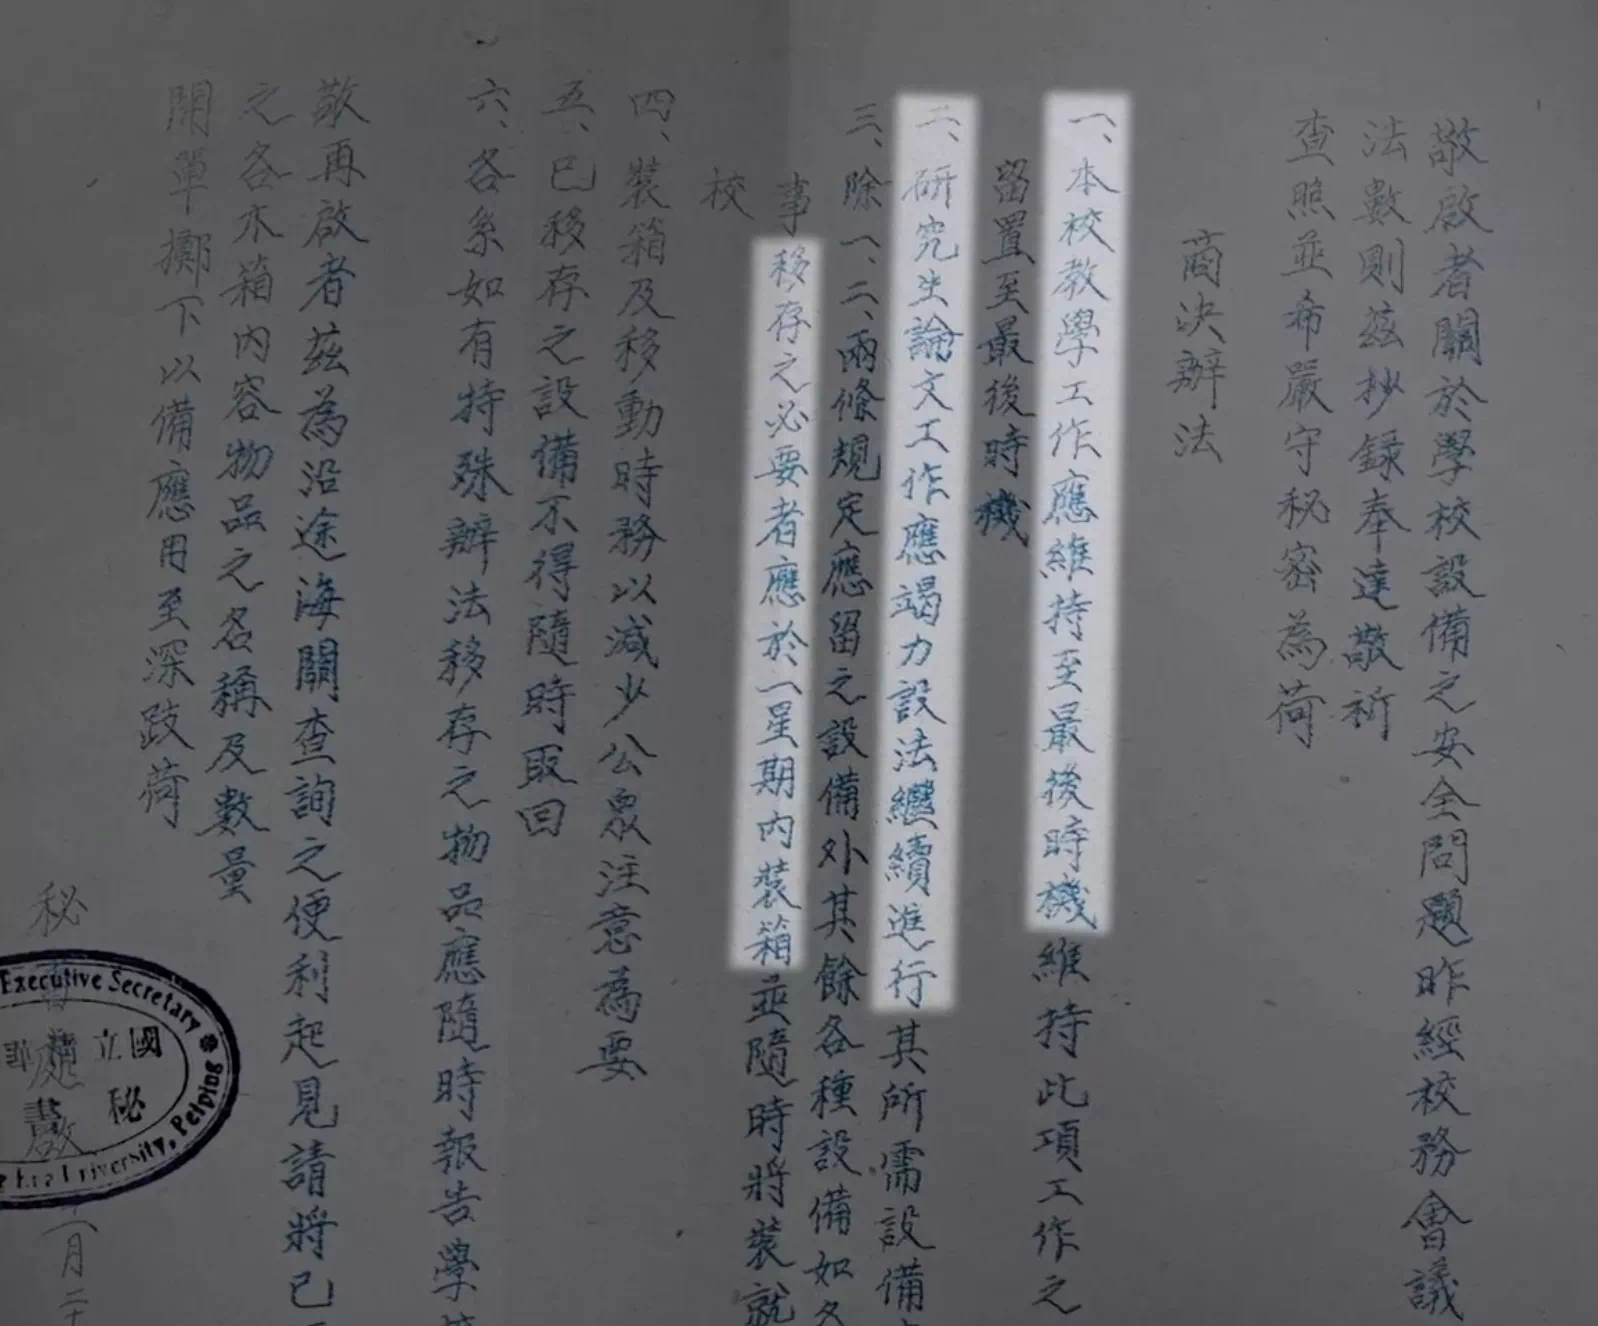 敬啟者關於學校設備之安全問題昨經校務會議
法數則茲抄録奉達敬祈
查照並希嚴守秘密為荷
商決辦法
一、本校教學工作應維持至最後時機維持此項工作之
留置至最後時機
二、研究生論文工作應竭力設法繼續進行其所需設備
三、除一、二、兩條規定應留之設備外其餘各種設備如各
事移存之必要者應於一星期內裝箱並隨時將裝就
校
四、裝箱及移動時務以減少公眾注意為要
五、已移存之設備不得隨時取回
六、各系如有特殊辦法移存之物品應隨時報告學
敬再啟者茲為沿途海關查詢之便利起見請將已
之各木箱內容物品之名稱及數量
開單擲下以備應用至深跂荷
秘書處啟
月二十
Executive Secretary
國立
秘
University, Peiping